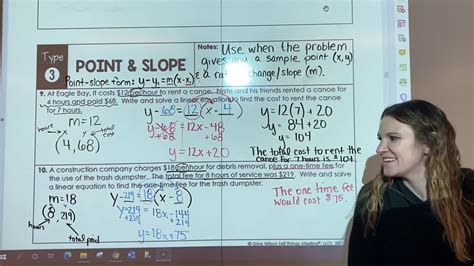 Type
3
POINT & SLOPE
Notes: Use when the problem
gives you a sample point (x, y)
& a rate of change/slope (m).
Point-slope form: y-y₁=m(x-x₁)
9. At Eagle Bay, it costs $12 per hour to rent a canoe. Nate and his friends rented a canoe for
4 hours and paid $68. Write and solve a linear equation to find the cost to rent the canoe
for 7 hours.
m=12
hours x y total cost
(4, 68)
y-68=12(x-4)
y-68=12x-48
+68 +68
y=12x+20
y=12(7)+20
y=84+20
y=104
The total cost to rent the
canoe for 7 hours is $104.
10. A construction company charges $18 per hour for debris removal, plus a one-time fee for
the use of the trash dumpster. The total fee for 8 hours of service was $219. Write and solve
a linear equation to find the one-time fee for the trash dumpster.
m=18
(8, 219)
hours
total paid
y-219=18(x-8)
y-219=18x-144
+219 +219
y=18x+75
The one time fee
would cost $75.
© Gina Wilson (All Things Algebra®, LLC),